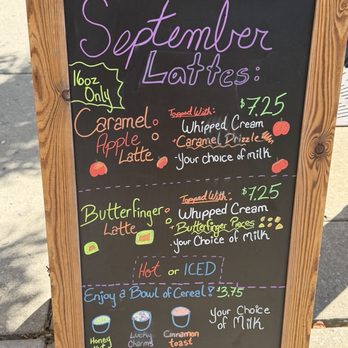 September
Lattes:
16oz
Only!
Caramel
Apple
Latte
Topped With:
$7.25
Whipped Cream
Caramel Drizzle
Your choice of milk
Butterfinger
Latte
Topped With:
$7.25
Whupped Cream
Butterfinger Pieces
Your Choice of Milk
Hot or ICED
Enjoy a Bowl of Cereal! $3.75
Honey
Lucky
Charms
Cinnamon
toast
Your Choice
of Milk